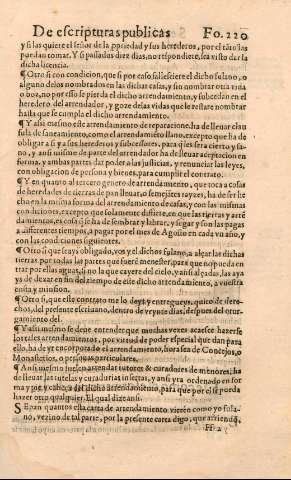 De escripturas publicas Fo. 220
y si las quiere el señor de la propiedad y sus herederos, por el tãto las
puedan tomar. Y si passados diez dias, no respondiere, sea visto dar la
dicha licencia.
¶ Otro si con condicion, que si por caso fallesciere el dicho fulano, o
alguno delos nombrados en las dichas casas, sin nombrar otra vida
o dos, no por esso se pierda el dicho arrendamiento, y subcedan en el
heredero del arrendador, y goze delas vidas que le restare nombrar
hasta que se cumpla el dicho arrendamiento.
¶ Y assi mesmo este arrendamiento de reparacion, ha de lleuar clau
sula de saneamiento, como el arrendamiento llano, excepto que ha de
obligar a si y a sus herederos y subcessores, para q̃ les sera cierto y sa-
no, y ansi mismo de parte del arrendador ha de lleuar aceptacion en
forma, y ambas partes dar poder a las justicias, y renunciar las leyes,
con obligacion de persona y bienes, para cumplir el contrato.
¶ Y en quanto al tercero genero de arrendamiento, que toca a cosas
de heredades de tierras de pan lleuar, o semejãtes rayzes, ha de ser he
cho en la misma forma del arrendamiento de casas, y con las mismas
condiciones, excepto que solamente difiere, en que las tierras y arrẽ
damientos, es cosa q̃ se ha de sembrar y labrar, y segar y son las pagas
a differentes tiempos, a pagar por el mes de Agosto en cada vn año, y
con las condiciones siguientes.
¶ Otro si que seays obligado, vos y el dicho fulano, a alçar las dichas
tierras por todas las partes que fuere menester, para que no pueda en
trar por ellas agua, si no la que cayere del cielo, y ansi alçadas, las aya
ys de dexar en fin del tiempo de este dicho arrendamiento, a vuestra
costa y mission.
¶ Otro si, que este contrato me lo deys y entregueys, quito de dere-
chos, del presente escriuano, dentro de veynte dias, despues del otor-
gamiento del.
¶ Y assi mesmo se deue entender que muchas vezes acaesce hazerse
los tales arrendamientos, por virtud de poder especial que dan para
ello, ha de yr encorporado el arrendamiento, hora sea de Concejos, o
Monasterios, o personas particulares.
¶ Ansi mesmo suelen arrendar tutores & curadores de menores, ha
de lleuar las tutelas y curadurias insertas, y ansi yra ordenado en for
ma y por cabeça del dicho arrendamiento, para que por el se pueda
hazer otro qualquier. El qual dize ansi.
SEpan quantos esta carta de arrendamiento vieren como yo fula-
no, vezino de tal parte, por la presente carta digo, que arriendo,